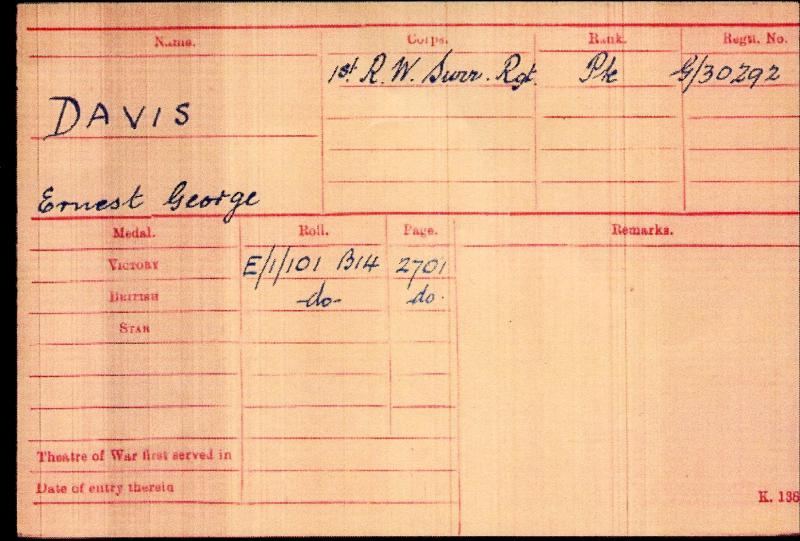 Name. Corps. Rank. Regtl. No.
1st R. W. Surr. Rgt. Pte G/30292
DAVIS
Ernest George
Medal. Roll. Page. Remarks.
VICTORY E/1/101 B14 2701
BRITISH -do- do.
STAR
Theatre of War first served in
Date of entry therein
K. 136